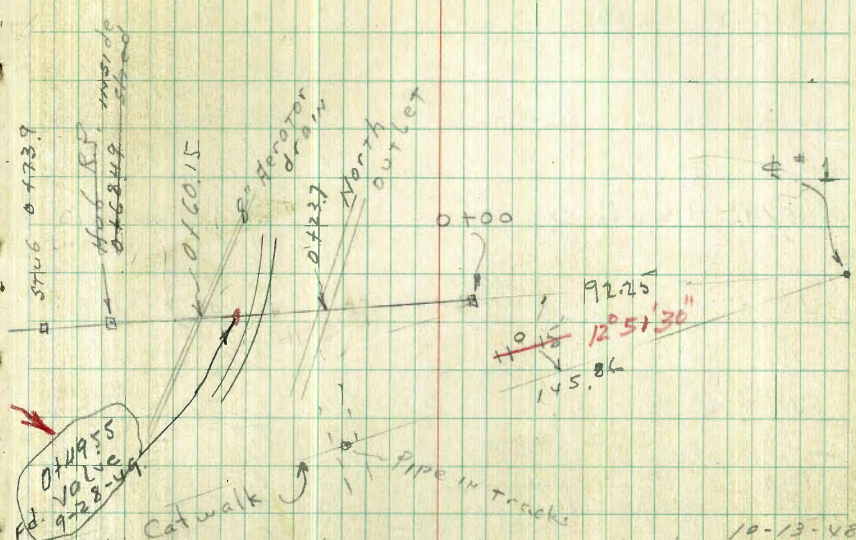 Stub 0+73.9
Hub R.P. inside
0+68.49 shed
0+60.15
8" Aerator
drain
0+23.7
North
Outlet
0+00
₵ #1
92.25
11° 15'
12° 51' 30"
145.86
0+49.55
Valve
Fd. 9-28-49
Catwalk
Pipe in track
10-13-48